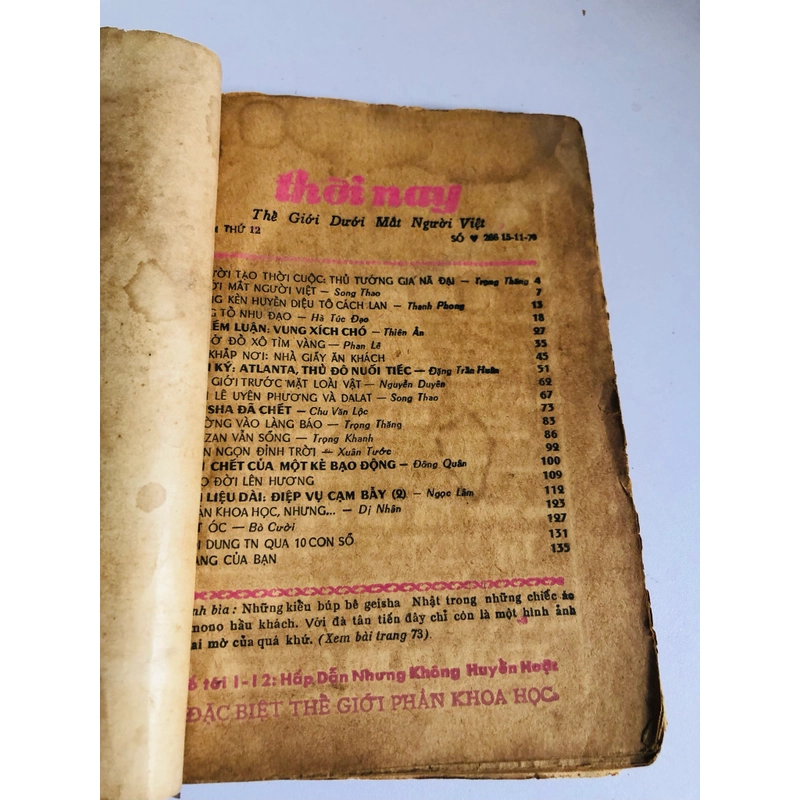 thời nay
Thế Giới Dưới Mắt Người Việt
THỨ 12
SỐ ♥ 266 15-11-70
ƯỜI TẠO THỜI CUỘC: THỦ TƯỚNG GIA NÃ ĐẠI — Trọng Thăng 4
ỚI MẮT NGƯỜI VIỆT — Song Thao 7
NG KÈN HUYỀN DIỆU TÔ CÁCH LAN — Thanh Phong 13
G TỔ NHU ĐẠO — Hà Túc Đạo 18
ẾM LUẬN: VUNG XÍCH CHÓ — Thiên Ân 27
Ờ ĐỔ XÔ TÌM VÀNG — Phan Lê 35
KHẮP NƠI: NHÀ GIẤY ĂN KHÁCH 45
I KÝ: ATLANTA, THỦ ĐÔ NUỐI TIẾC — Đặng Trần Huân 51
GIỚI TRƯỚC MẶT LOÀI VẬT — Nguyễn Duyên 62
I LÊ UYÊN PHƯƠNG VÀ DALAT — Song Thao 67
ISHA ĐÃ CHẾT — Chu Văn Lộc 73
ỜNG VÀO LÀNG BÁO — Trọng Thăng 83
ZAN VẪN SỐNG — Trọng Khanh 86
N NGỌN ĐỈNH TRỜI — Xuân Tước 92
CHẾT CỦA MỘT KẺ BẠO ĐỘNG — Đông Quân 100
O ĐỜI LÊN HƯƠNG 109
LIỆU DÀI: ĐIỆP VỤ CẠM BẪY (2) — Ngọc Lâm 112
ẢN KHOA HỌC, NHƯNG... — Dị Nhân 123
T ÓC — Bò Cười 127
I DUNG TN QUA 10 CON SỐ 131
ANG CỦA BẠN 135
nh bìa : Những kiều búp bê geisha Nhật trong những chiếc áo
mono hầu khách. Với đà tân tiến đây chỉ còn là một hình ảnh
ai mờ của quá khứ. (Xem bài trang 73).
ố tới 1-12: Hấp Dẫn Nhưng Không Huyễn Hoặc
ĐẶC BIỆT THẾ GIỚI PHẢN KHOA HỌC